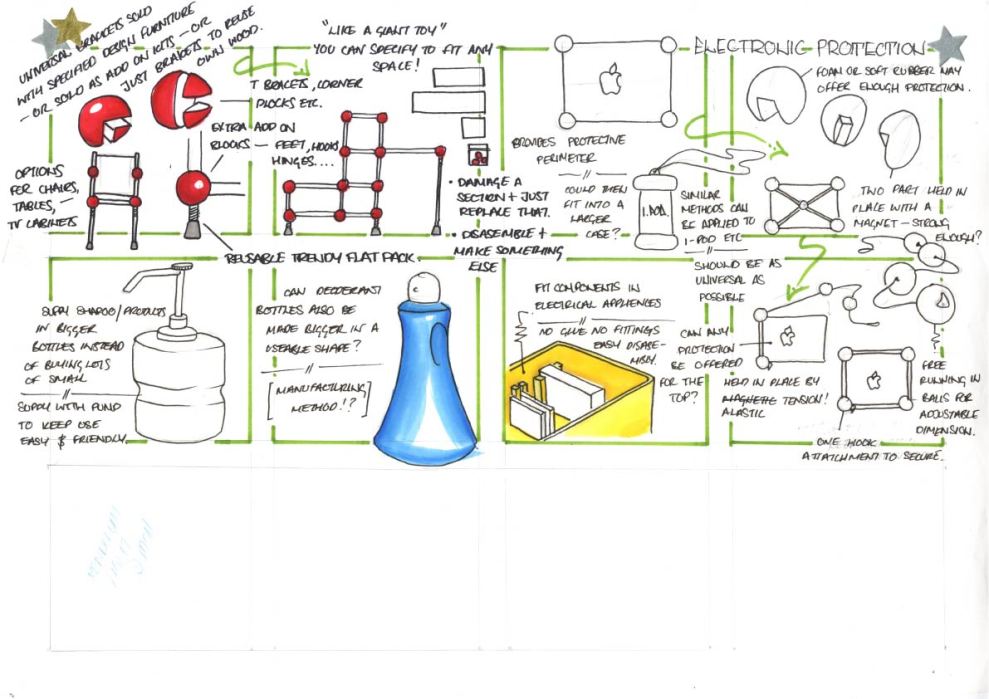 UNIVERSAL BRACKETS SOLD
WITH SPECIFIED DESIGN FURNITURE
OR SOLD AS ADD ON KITS — OR
JUST BRACKETS TO REUSE
OWN WOOD.
OPTIONS
FOR CHAIRS,
TABLES,
TV CABINETS
"LIKE A GIANT TOY"
YOU CAN SPECIFY TO FIT ANY
SPACE!
T BRACETS, CORNER
BLOCKS ETC.
EXTRA ADD ON
BLOCKS — FEET, HOOKS
HINGES....
• DAMAGE A
SECTION + JUST
REPLACE THAT.
• DISASEMBLE +
MAKE SOMETHING
ELSE
REUSABLE TRENDY FLAT PACK
ELECTRONIC PROTECTION
PROVIDES PROTECTIVE
PERIMETER
COULD THEN
FIT INTO A
LARGER
CASE?
SIMILAR
METHODS CAN
BE APPLIED TO
I-POD ETC
FOAM OR SOFT RUBBER MAY
OFFER ENOUGH PROTECTION.
TWO PART HELD IN
PLACE WITH A
MAGNET — STRONG
ENOUGH?
SHOULD BE AS
UNIVERSAL AS
POSSIBLE
CAN ANY
PROTECTION
BE OFFERED
FOR THE
TOP?
HELD IN PLACE BY
MAGNETIC TENSION!
ALASTIC
FREE
RUNNING IN
BALLS FOR
ADJUSTABLE
DIMENSION.
ONE HOOK
ATTATCHMENT TO SECURE.
SUPPLY SHAPOO/PRODUCTS
IN BIGGER
BOTTLES INSTEAD
OF BUYING LOTS
OF SMALL
SUPPLY WITH PUMP
TO KEEP USE
EASY & FRIENDLY.
CAN DEODERANT
BOTTLES ALSO BE
MADE BIGGER IN A
USEABLE SHAPE?
[MANUFACTURING
METHOD!?]
FIT COMPONENTS IN
ELECTRICAL APPLIENCES
NO GLUE NO FITTINGS
EASY DISASE-
MBLY.